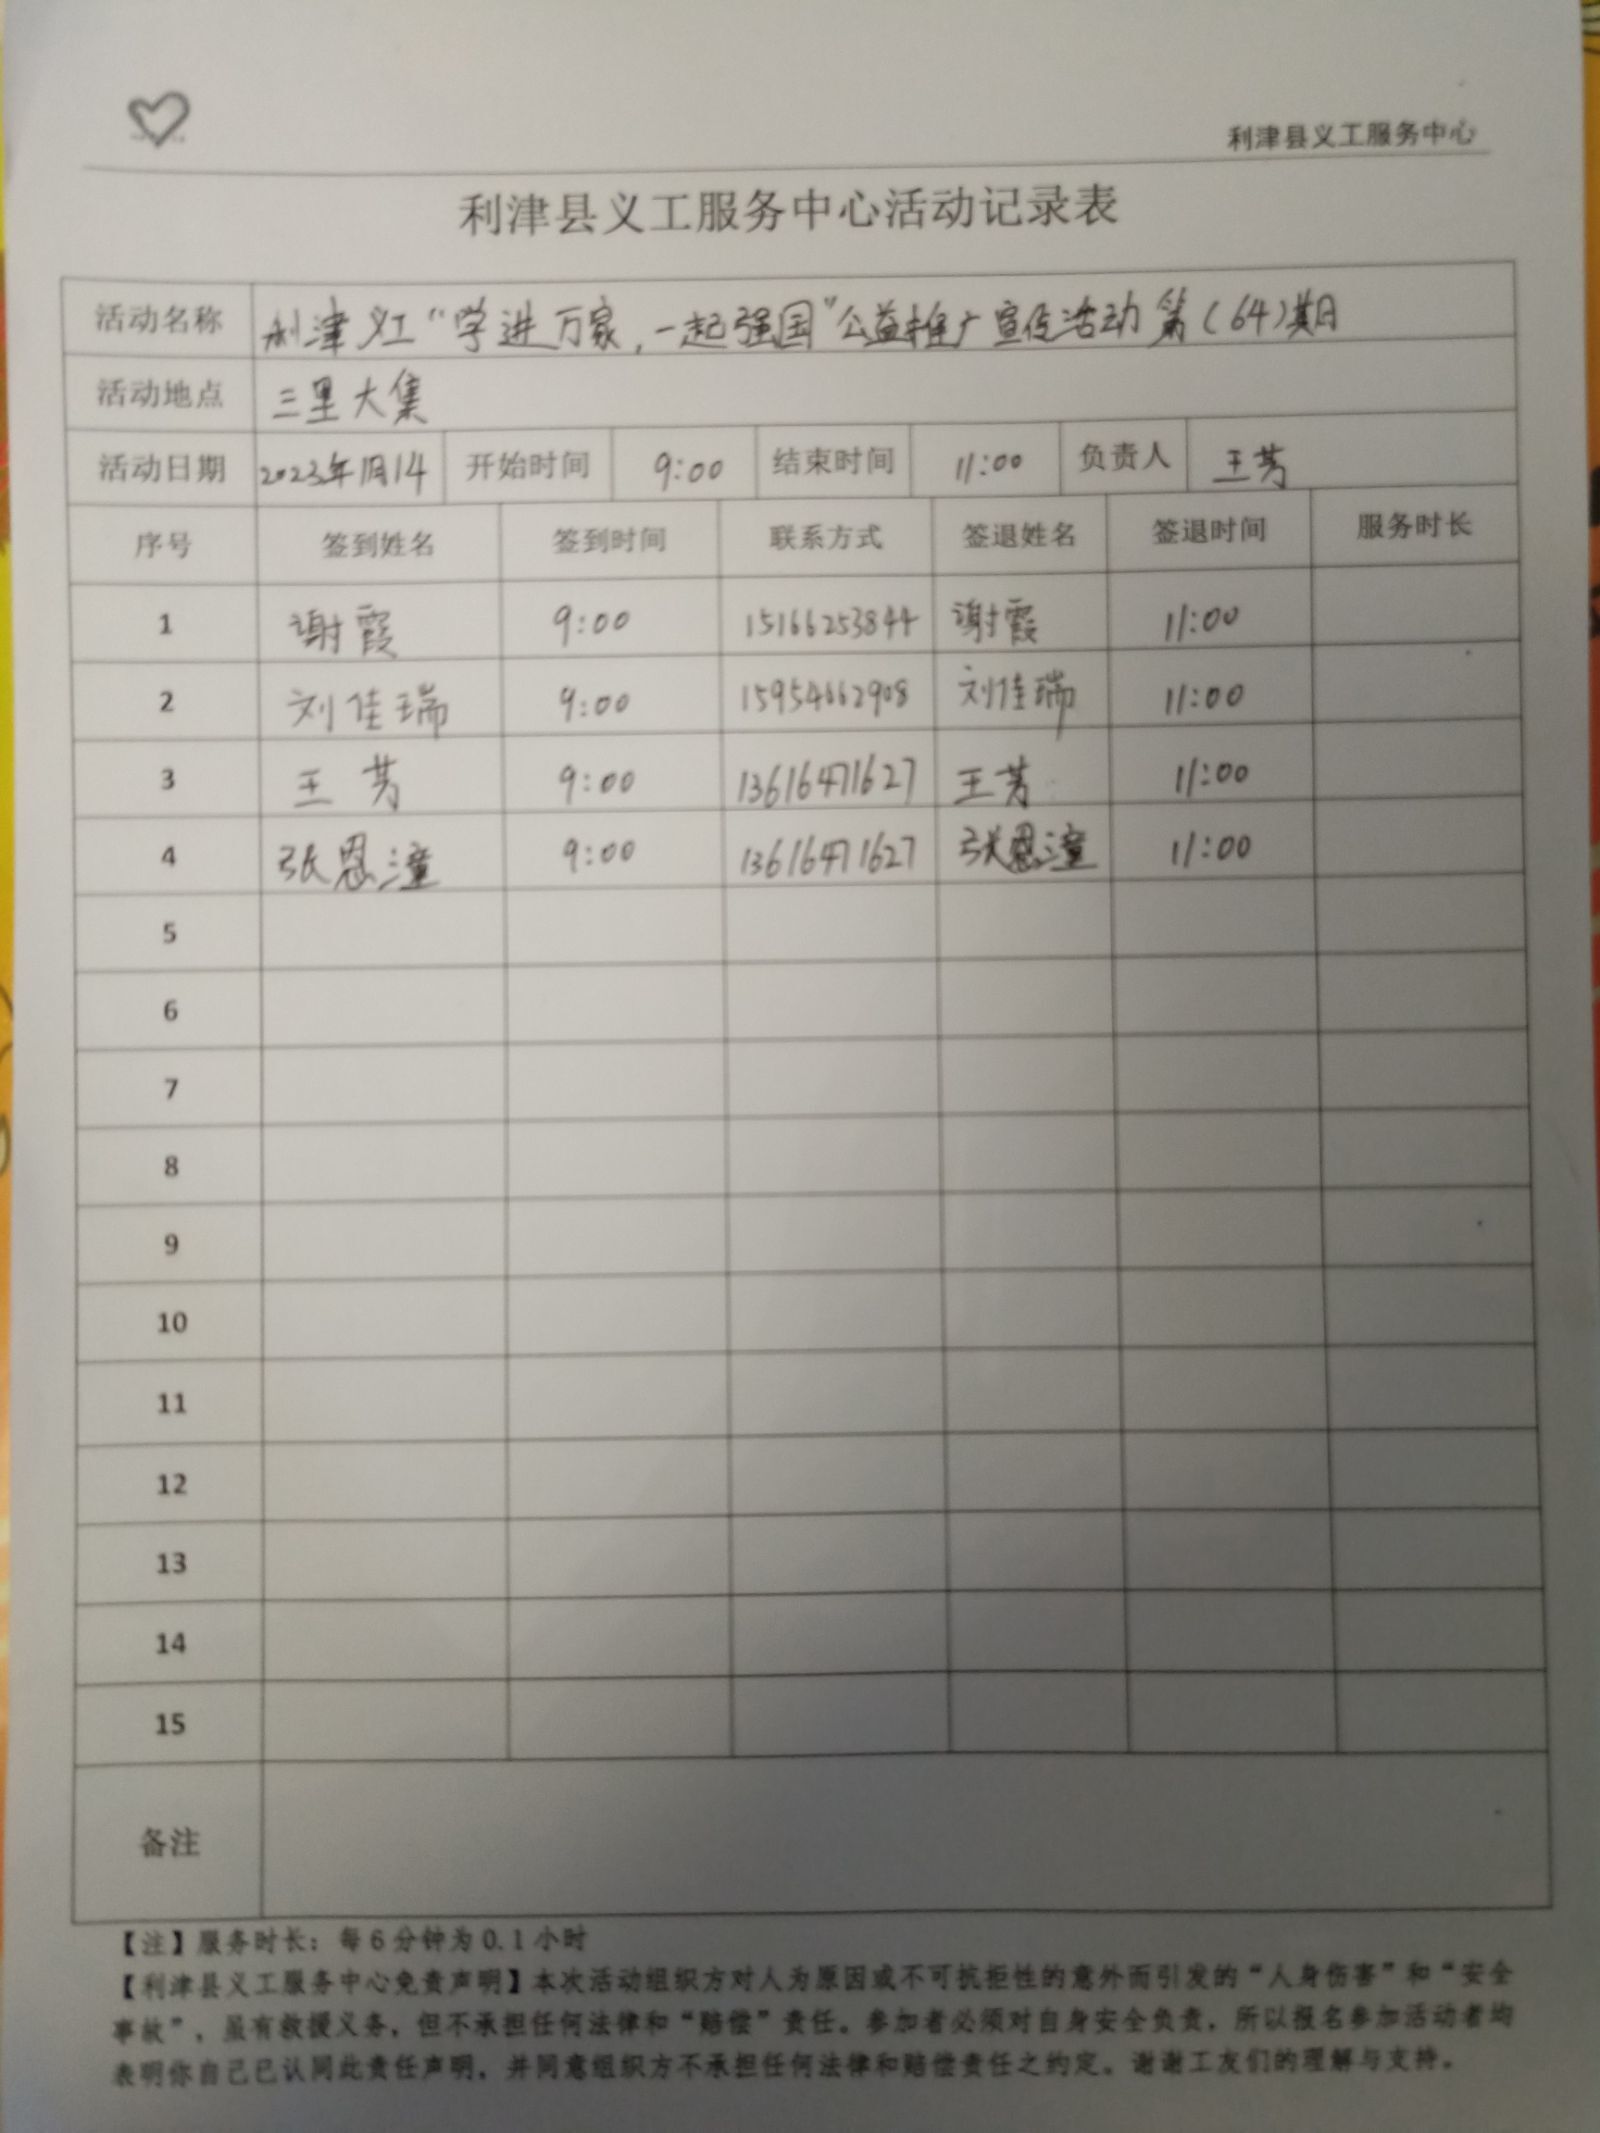 利津县义工服务中心
利津县义工服务中心活动记录表
活动名称 利津义工“学进万家,一起强国”公益推广宣传活动第(64)期
活动地点 三里大集
活动日期 2023年1月14 开始时间 9:00 结束时间 11:00 负责人 王芳
序号 签到姓名 签到时间 联系方式 签退姓名 签退时间 服务时长
1 谢霞 9:00 15166253844 谢霞 11:00
2 刘佳瑞 9:00 15954662908 刘佳瑞 11:00
3 王芳 9:00 13616471627 王芳 11:00
4 张恩潼 9:00 13616471627 张恩潼 11:00
5
6
7
8
9
10
11
12
13
14
15
备注
【注】服务时长：每6分钟为0.1小时
【利津县义工服务中心免责声明】本次活动组织方对人为原因或不可抗拒性的意外而引发的“人身伤害”和“安全
事故”，虽有救援义务，但不承担任何法律和“赔偿”责任。参加者必须对自身安全负责，所以报名参加活动者均
表明你自己已认同此责任声明，并同意组织方不承担任何法律和赔偿责任之约定。谢谢工友们的理解与支持。